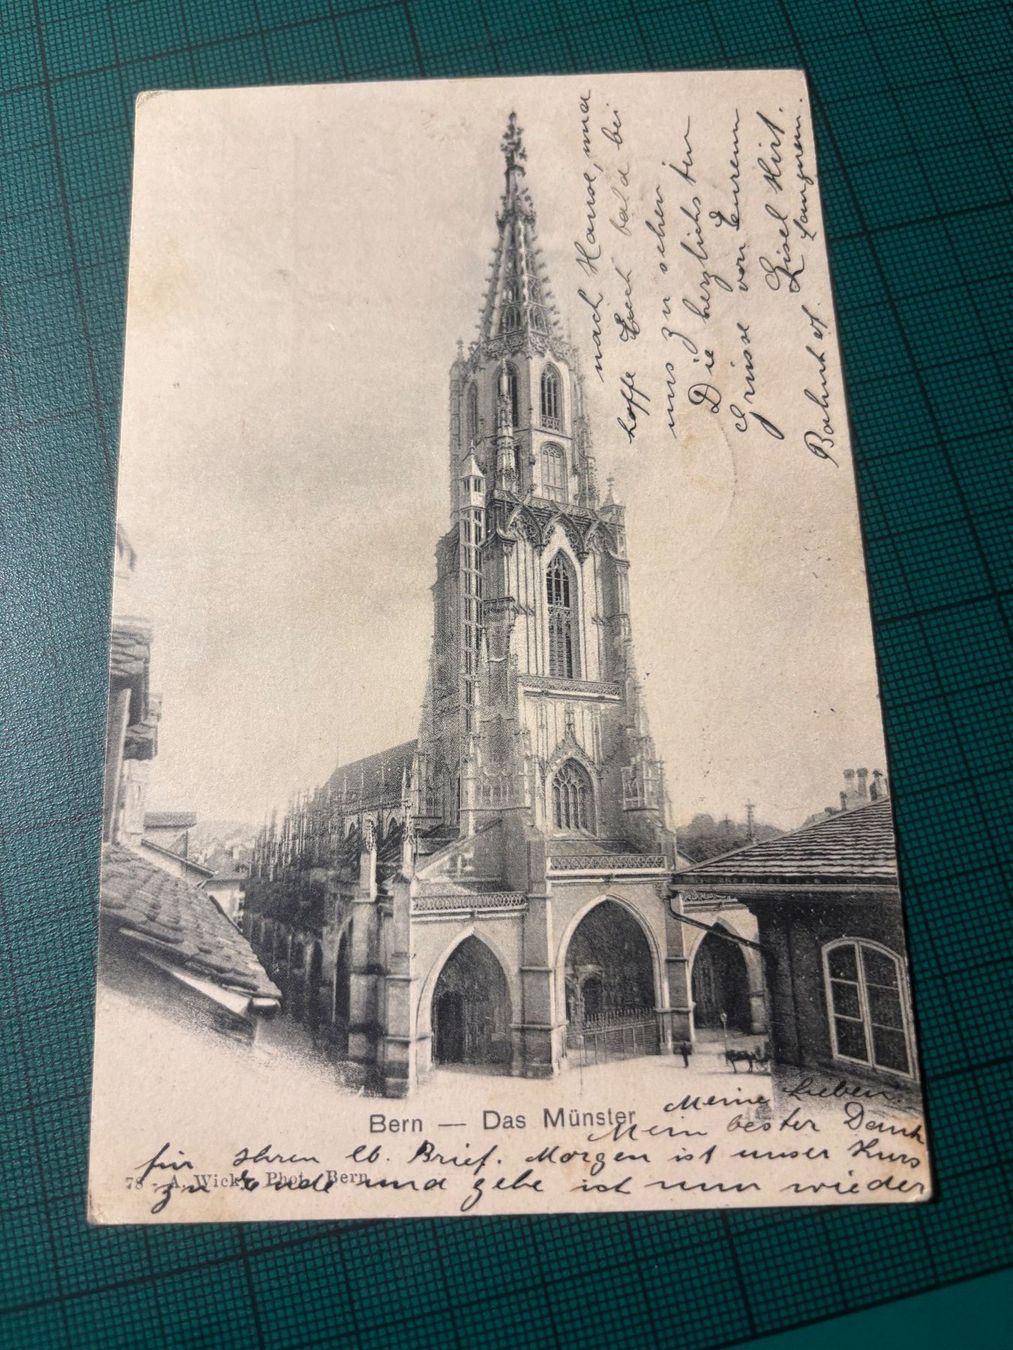 Bern — Das Münster
78 - A. Wicky, Phot. Bern
Meine Lieben.
Mein bester Dank
für Ihren lb. Brief. Morgen ist unser Kurs
zu Ende und gehe ich nun wieder
nach Hause, und
hoffe Euch bald bei
uns zu sehen
Die herzlichsten
Grüsse von Eurem
Lisel Hirt.
Bahnhof.